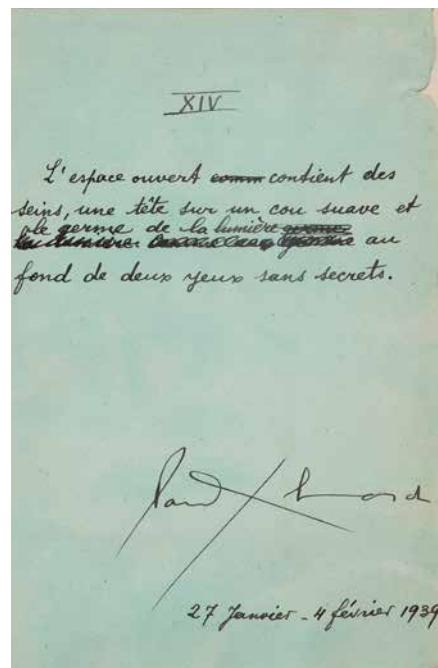 XIV
L'espace ouvert comm contient des
seins, une tête sur un cou suave et
le germe de la lumière germe
la lumière au
fond de deux yeux sans secrets.
Paul Eluard
27 Janvier - 4 février 1939